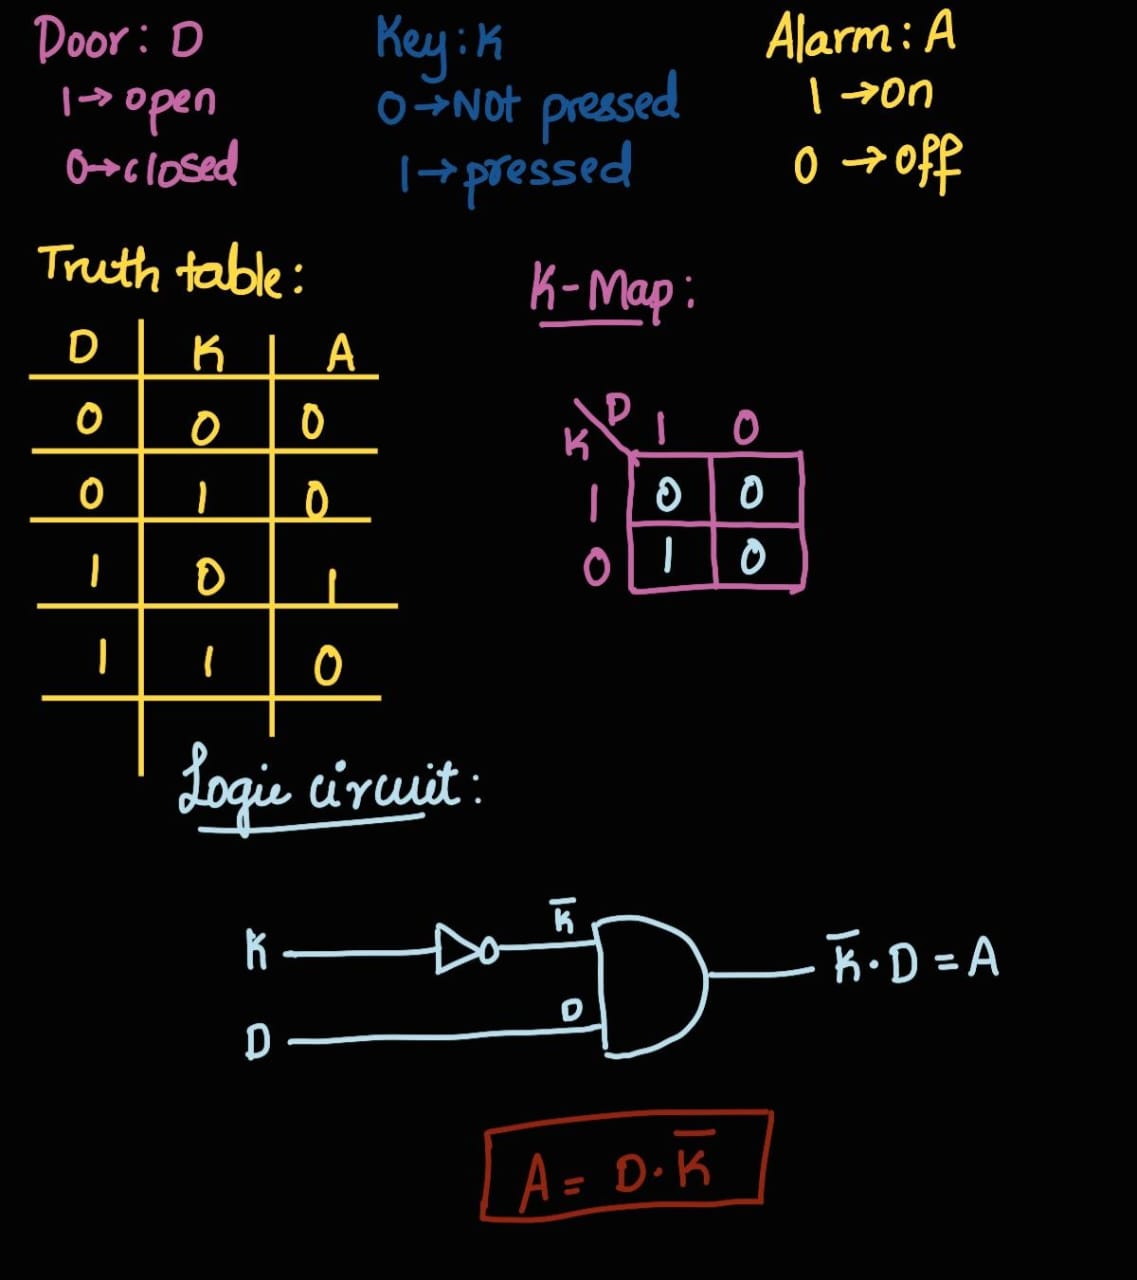 Door: D
1→open
0→closed
Key: K
0→Not pressed
1→pressed
Alarm: A
1→on
0→off
Truth table:
D K A
0 0 0
0 1 0
1 0 1
1 1 0
K-Map:
D
K
1 0
1 0 0
0 1 0
Logic circuit:
K K̅
D D
K̅·D = A
A = D·K̅